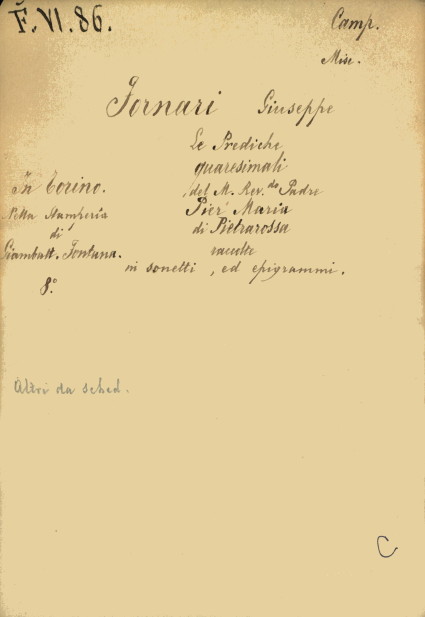 F. VI. 86.
Camp.
Misc.
Fornari Giuseppe
Le Prediche
quaresimali
del M. Rev.do Padre
Pier Maria
di Pietrarossa
raccolte
in sonetti, ed epigrammi.
In Torino.
Nella Stamperia
di
Giambatt. Fontana.
8.°
Altri da sched.
C